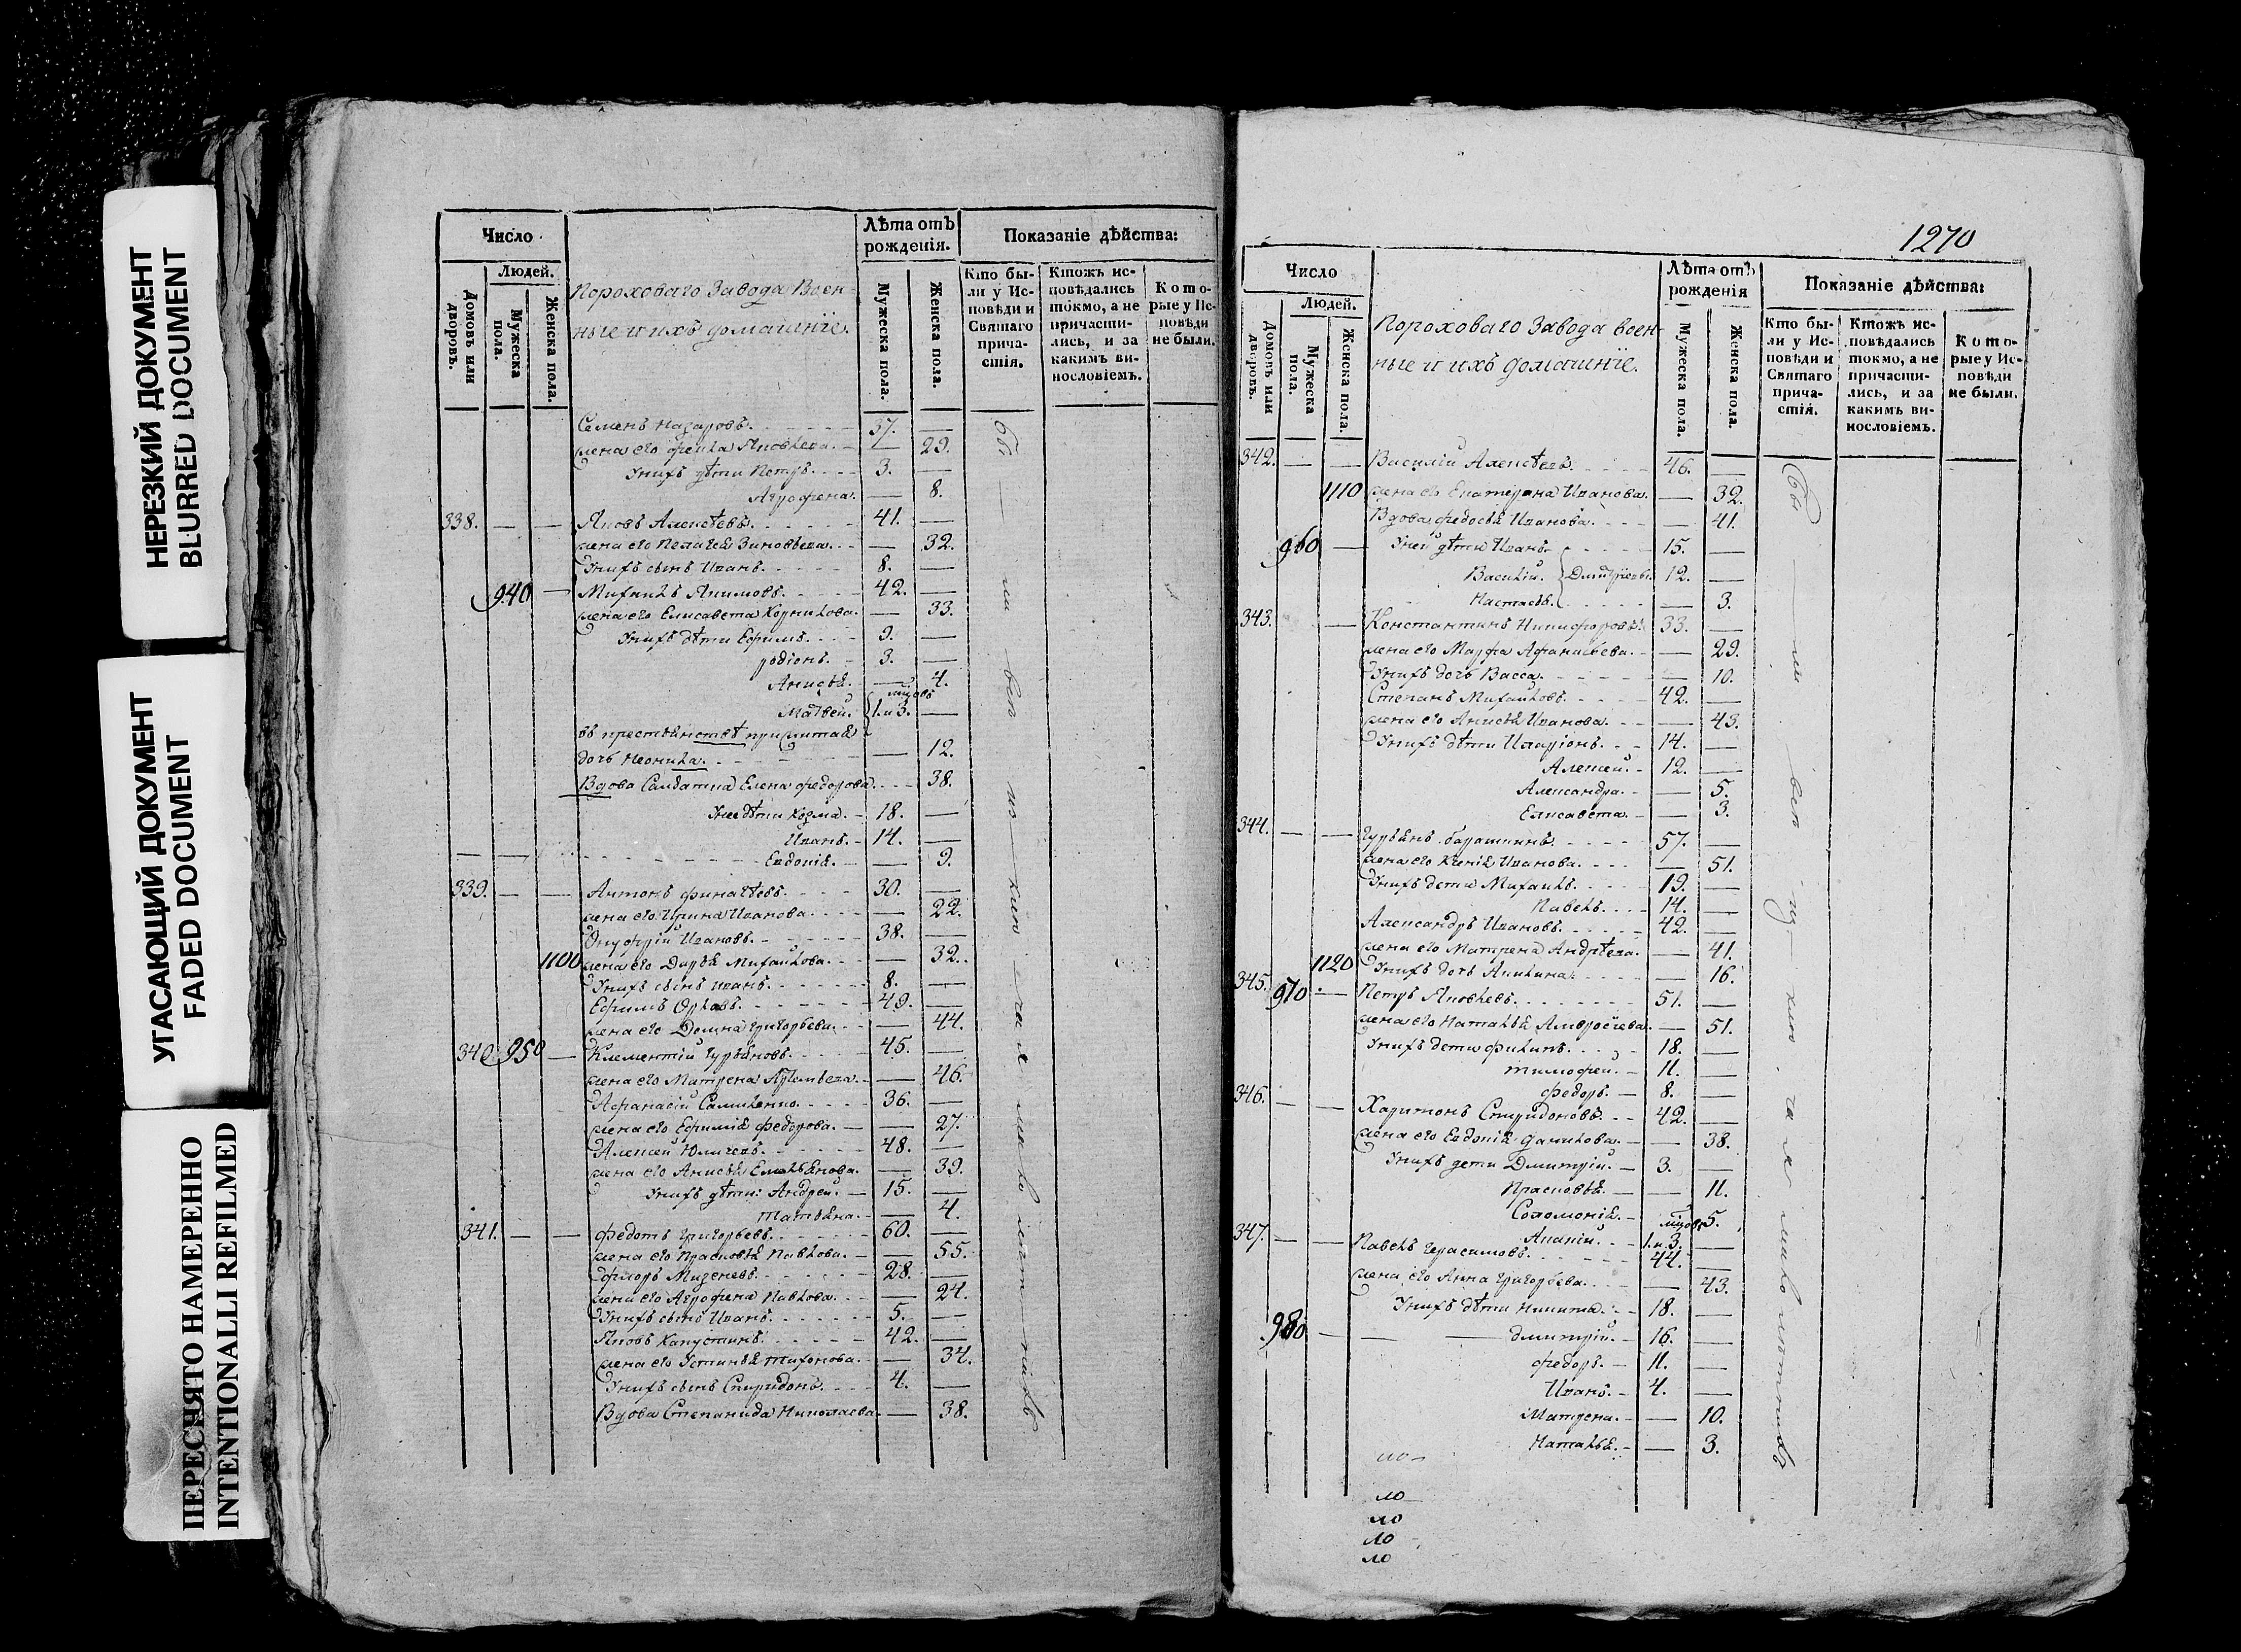 НЕРЕЗКИЙ ДОКУМЕНТ
BLURRED DOCUMENT
УГАСАЮЩИЙ ДОКУМЕНТ
FADED DOCUMENT
ПЕРЕСНЯТО НАМЕРЕННО
INTENTIONALLI REFILMED
Число
Людей.
Домовъ или дворовъ.
Мужеска пола.
Женска пола.
Пороховаго Завода Воен-
ные и ихъ домашніе.
Лѣта отъ рожденія.
Мужеска пола.
Женска пола.
Показаніе дѣйства:
Кто бы-
ли у Ис-
повѣди и
Святаго
прича-
стія.
Ктожъ ис-
повѣдались
токмо, а не
причасти-
лись, и за
какимъ ви-
нословіемъ.
Кото-
рые у Ис-
повѣди
не были.
Семенъ Назаровъ. 37.
жена его Фекла Яковлева. 29.
У нихъ дѣти Петръ. 3.
Агрофена. 8.
338. Яковъ Алексѣевъ. 41.
жена его Пелагея Зиновьева. 32.
У нихъ сынъ Иванъ. 8.
940 Михаилъ Якимовъ. 42.
жена его Елисавета Корнилова. 33.
У нихъ дѣти Ефимъ. 9.
родіонъ. 3.
Анисья. 4.
Матвей. 1. и 3.
дочь Неонила. 12.
Вдова Салдатка Елена Федорова. 38.
У нее дѣти Козма. 18.
Иванъ. 14.
Евдокія. 9.
339. Антонъ 30.
жена его Ирина Иванова. 22.
Онуфрій Ивановъ. 38.
1100 жена его Дарья Михайлова. 32.
У нихъ сынъ Иванъ. 8.
Ефимъ Орловъ. 49.
жена его Домна Григорьева. 44.
340. 950 Климентій Гурьяновъ. 45.
жена его Матрена Артемьева. 46.
Афанасій 36.
жена его Ефимія Федорова. 27.
Алексей 48.
жена его Анисья Емельянова. 39.
У нихъ дѣти: Андрей. 15.
Татьяна. 4.
341. Федотъ Григорьевъ. 60.
жена его Прасковья Павлова. 55.
28.
жена его Агрофена Павлова. 24.
У нихъ сынъ Иванъ. 5.
Яковъ Капустинъ. 42.
жена его Устинья Тихонова. 34.
У нихъ сынъ Спиридонъ. 4.
Вдова Степанида Николаева. 38.
1270
Число
Людей.
Домовъ или дворовъ.
Мужеска пола.
Женска пола.
Пороховаго Завода воен-
ные и ихъ домашніе.
Лѣта отъ рожденія
Мужеска пола.
Женска пола.
Показаніе дѣйства:
Кто бы-
ли у Ис-
повѣди и
Святаго
прича-
стія.
Ктожъ ис-
повѣдались
токмо, а не
причасти-
лись, и за
какимъ ви-
нословіемъ.
Кото-
рые у Ис-
повѣди
не были.
342. Василій Алексѣевъ. 46.
1110 жена его Екатерина Иванова. 32.
Вдова Федосья Иванова. 41.
960 У ней дѣти Иванъ. 15.
Василій. Дмитріевы. 12.
Настасья. 3.
343. Константинъ Никифоровъ. 33.
жена его Марфа Афанасьева. 29.
У нихъ дочь Васса. 10.
Степанъ Михайловъ. 42.
жена его Анисья Иванова. 43.
У нихъ дѣти Иларіонъ. 14.
Алексей. 12.
Александра. 5.
Елисавета. 3.
344. Гурьянъ 57.
жена его Ксенія Иванова. 51.
У нихъ дети Михаилъ. 19.
Павелъ. 14.
Александръ Ивановъ. 42.
жена его Матрена Андрѣева. 41.
1120 У нихъ дочь Акилина. 16.
345. 970 Петръ Яковлевъ. 51.
жена его Наталья Амвросіева. 51.
У нихъ дети Филипъ. 18.
Тимофей. 11.
Федоръ. 8.
346. Харитонъ Спиридоновъ. 42.
жена его Евдокія Данилова. 38.
У нихъ дети Дмитрій. 3.
Прасковья. 11.
Соломонія. 5.
Ананій. 1. и 3.
347. Павелъ Герасимовъ. 44.
жена его Анна Григорьева. 43.
У нихъ дѣти Никита. 18.
980 Дмитрій. 16.
Федоръ. 11.
Иванъ. 4.
Матрена. 10.
Наталья. 3.